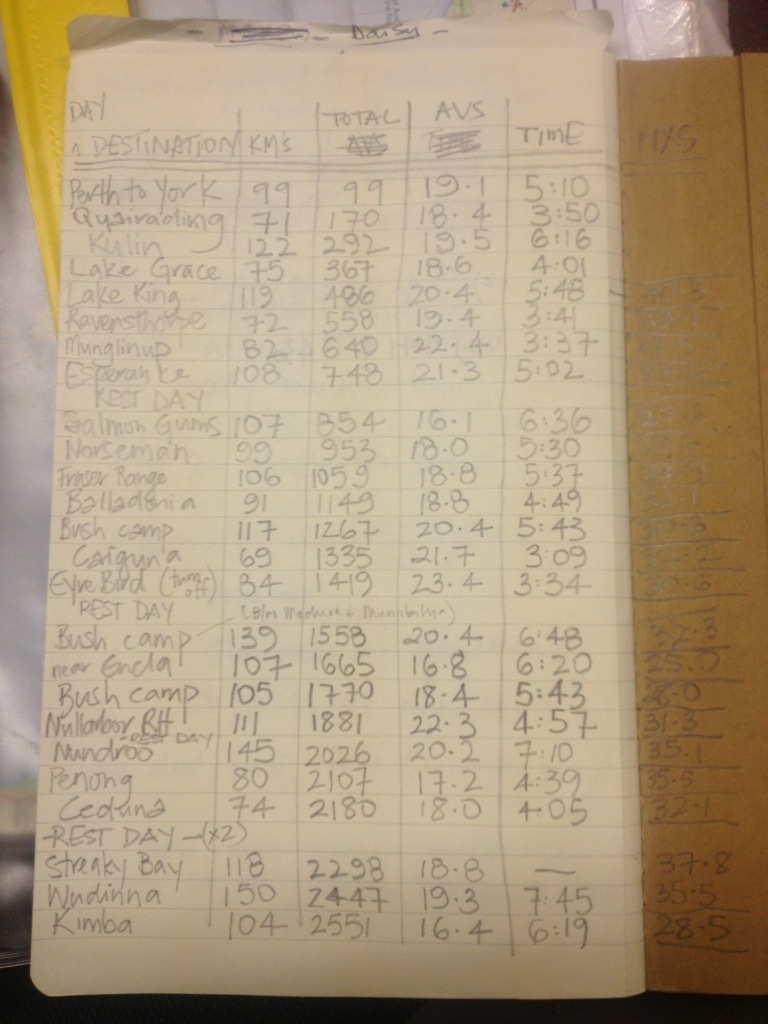 - Daisy -
DAY TOTAL AVS
DESTINATION KM's TIME MXS
Perth to York 99 99 19.1 5:10
Quairading 71 170 18.4 3:50
Kulin 122 292 19.5 6:16
Lake Grace 75 367 18.6 4:01
Lake King 119 486 20.4 5:48
Ravensthorpe 72 558 19.4 3:41
Munglinup 82 640 22.4 3:37
Esperance 108 748 21.3 5:02
REST DAY
Salmon Gums 107 854 16.1 6:36
Norseman 99 953 18.0 5:30
Fraser Range 106 1059 18.8 5:37
Balladonia 91 1149 18.8 4:49
Bush camp 117 1267 20.4 5:43
Caiguna 69 1335 21.7 3:09
Eyre Bird (turn off) 84 1419 23.4 3:34
REST DAY (B/n Madura + Mundrabilla)
Bush camp 139 1558 20.4 6:48 32.3
near Eucla 107 1665 16.8 6:20 25.0
Bush camp 105 1770 18.4 5:43 26.0
Nullarbor RH 111 1881 22.3 4:57 31.3
- REST DAY
Nundroo 145 2026 20.2 7:10 35.1
Penong 80 2107 17.2 4:39 35.5
Ceduna 74 2180 18.0 4:05 32.1
-REST DAY -(x2)
Streaky Bay 118 2298 18.8 — 37.8
Wudinna 150 2447 19.3 7:45 35.5
Kimba 104 2551 16.4 6:19 28.5